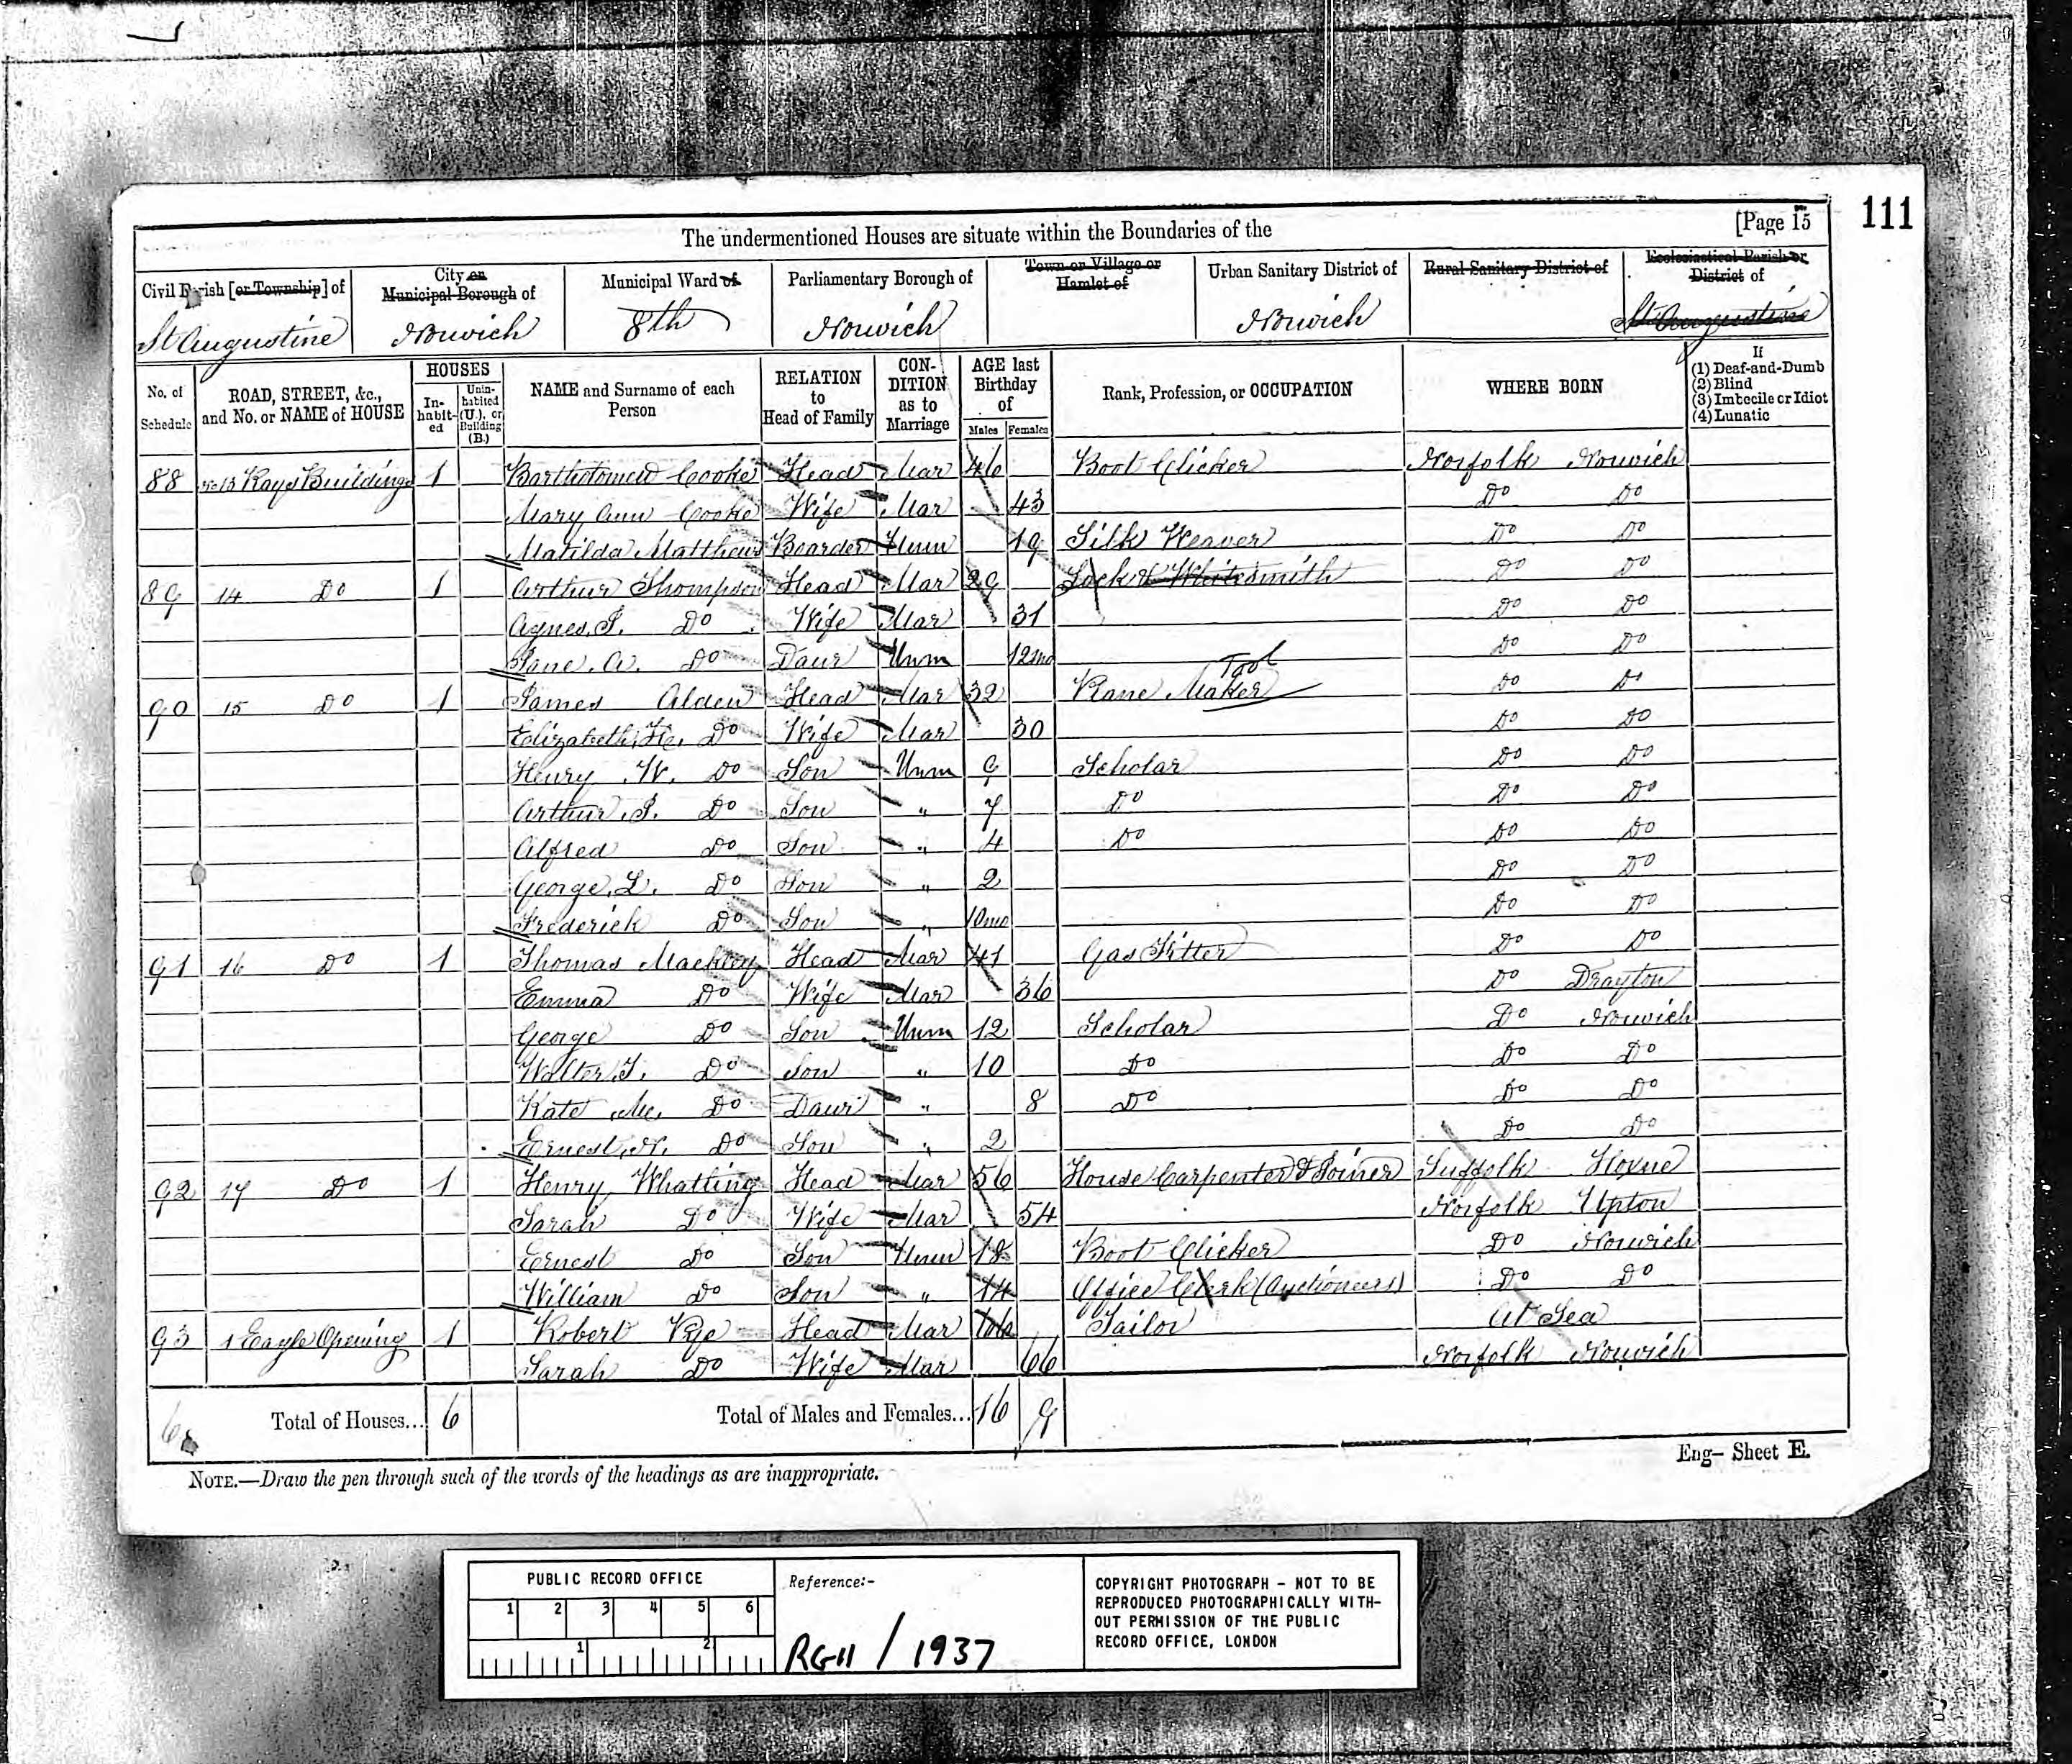 111
The undermentioned Houses are situate within the Boundaries of the [Page 15
Civil Parish [or Township] of City or Municipal Borough of Municipal Ward of Parliamentary Borough of Town or Village or Hamlet of Urban Sanitary District of Rural Sanitary District of Ecclesiastical Parish or District of
St Augustine Norwich 8th Norwich Norwich St Augustine
No. of Schedule ROAD, STREET, &c., and No. or NAME of HOUSE HOUSES In-habit-ed Unin-habited (U.), or Building (B.) NAME and Surname of each Person RELATION to Head of Family CON-DITION as to Marriage AGE last Birthday of Males Females Rank, Profession, or OCCUPATION WHERE BORN If (1) Deaf-and-Dumb (2) Blind (3) Imbecile or Idiot (4) Lunatic
88 No 13 Rays Buildings 1 Bartholomew Cooke Head Mar 46 Boot Clicker Norfolk Norwich
Mary Ann Cooke Wife Mar 43 Do Do
Matilda Matthews Boarder Unm 19 Silk Weaver Do Do
89 14 Do 1 Arthur Thompson Head Mar 29 Lock & Whitesmith Do Do
Agnes. J. Do Wife Mar 31 Do Do
Jane. A. Do Daur Unm 12mo Do Do
90 15 Do 1 James Alden Head Mar 32 Plane Tool Maker Do Do
Elizabeth. H. Do Wife Mar 30 Do Do
Henry W. Do Son Unm 9 Scholar Do Do
Arthur. J. Do Son " 7 Do Do Do
Alfred Do Son " 4 Do Do Do
George. L. Do Son " 2 Do Do
Frederick Do Son " 10mo Do Do
91 16 Do 1 Thomas Mackley Head Mar 41 Gas Fitter Do Do
Emma Do Wife Mar 36 Do Drayton
George Do Son Unm 12 Scholar Do Norwich
Walter. T. Do Son " 10 Do Do Do
Kate M. Do Daur " 8 Do Do Do
Ernest. N. Do Son " 2 Do Do
92 17 Do 1 Henry Whatling Head Mar 56 House Carpenter & Joiner Suffolk Hoxne
Sarah Do Wife Mar 54 Norfolk Upton
Ernest Do Son Unm 18 Boot Clicker Do Norwich
William Do Son " 14 Office Clerk (Auctioneers) Do Do
93 1 Eagle Opening 1 Robert Rye Head Mar 66 Tailor At Sea
Sarah Do Wife Mar 66 Norfolk Norwich
6 Total of Houses... 6 Total of Males and Females... 16 9
Eng- Sheet E.
NOTE.—Draw the pen through such of the words of the headings as are inappropriate.
PUBLIC RECORD OFFICE
1 2 3 4 5 6
1 2
Reference:-
RG11 / 1937
COPYRIGHT PHOTOGRAPH - NOT TO BE
REPRODUCED PHOTOGRAPHICALLY WITH-
OUT PERMISSION OF THE PUBLIC
RECORD OFFICE, LONDON